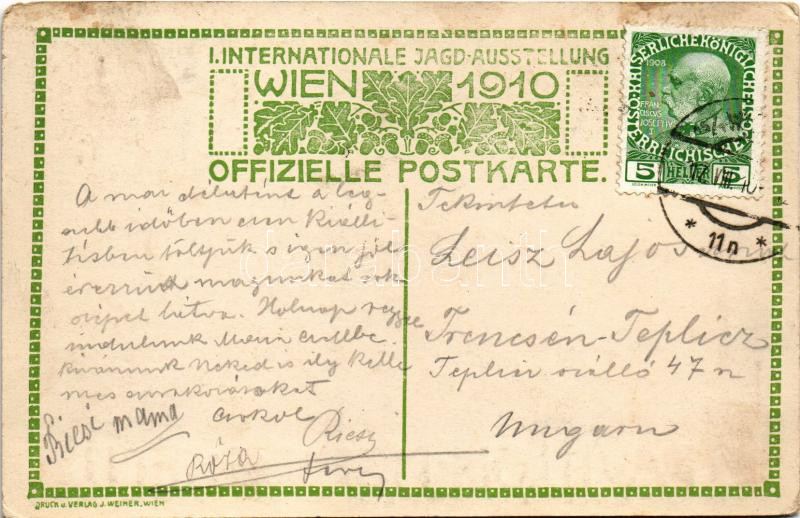 I. INTERNATIONALE JAGD-AUSSTELLUNG
WIEN 1910
OFFIZIELLE POSTKARTE.
KAISERLICHE KÖNIGLICHE
ÖSTERREICHISCHE POST
1908
FRAN
CISCVS
JOSEF I
5 HELLER
* 11n *
A mai délutánt a leg
szebb időben ezen kiálli
tásban töltjük s igen jól
érezzük magunkat sok
szépet látva. Holnap reggel
indulunk Maria
kivánunk Neked is ily kelle
mes
csókol
Ricsi mama
Ricsi
Róza
Tekintetes
Leisz Lajos
Trencsén-Teplicz
Teplicz szálló 47 n
Ungarn
DRUCK U. VERLAG J. WEINER, WIEN
darabanth